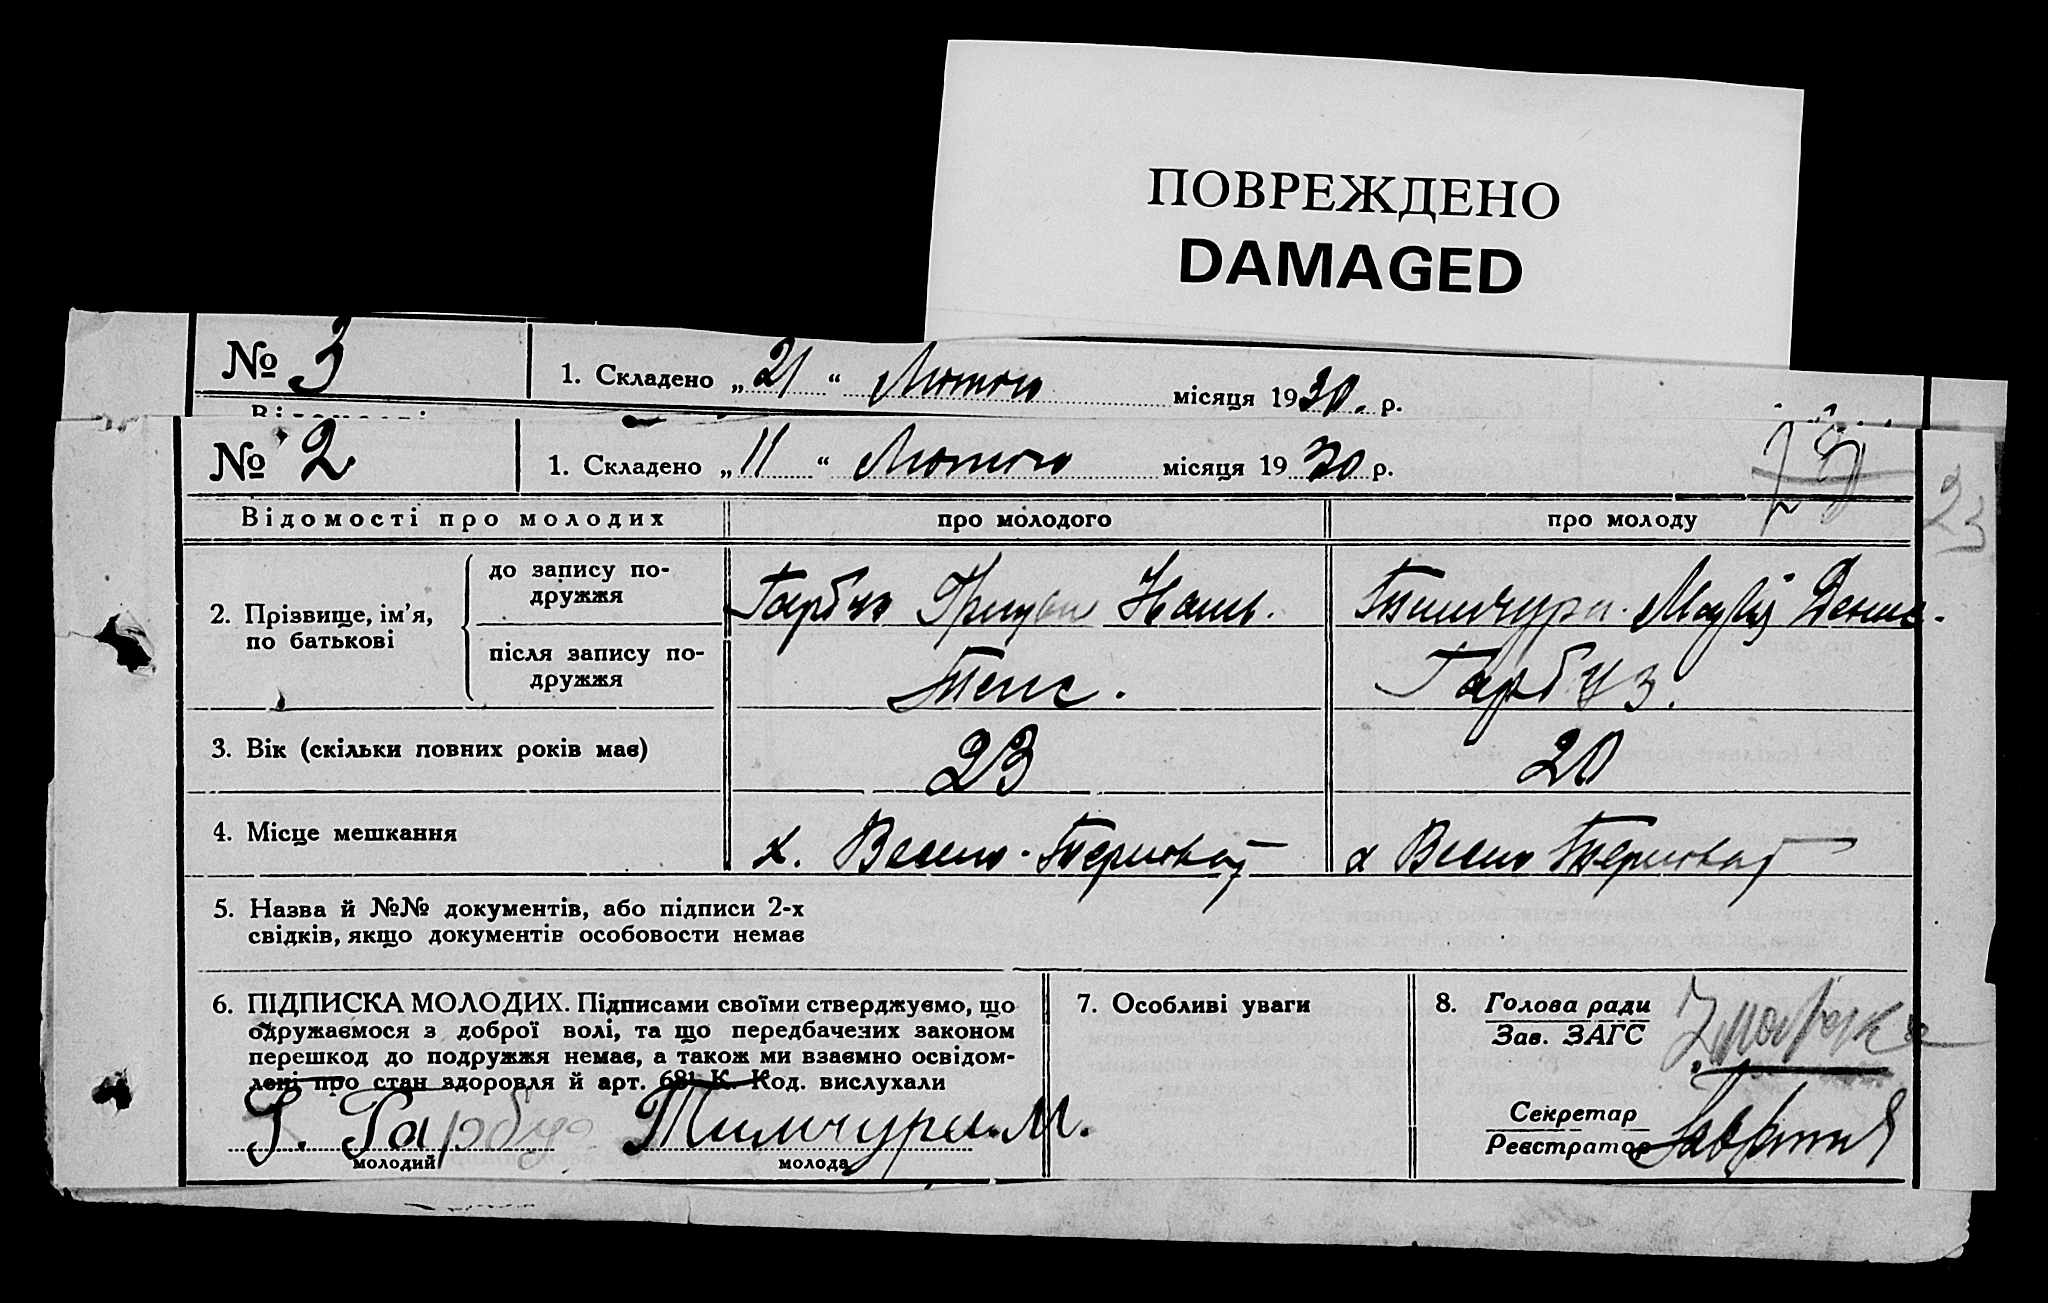 ПОВРЕЖДЕНО
DAMAGED
№ 3
1. Складено „ 21 “ Лютого місяця 1930. р.
№ 2
1. Складено „ 11 “ Лютого місяця 1930 р.
23
Відомості про молодих
про молодого
про молоду
2. Прізвище, ім’я, по батькові
до запису по-
дружжя
Гарбуз
Тимчура Марія Денис.
після запису по-
дружжя
Теж.
Гарбуз.
3. Вік (скільки повних років має)
23
20
4. Місце мешкання
х. Весело-Терноват
х Весело Терноват
5. Назва й №№ документів, або підписи 2-х
свідків, якщо документів особовости немає
6. ПІДПИСКА МОЛОДИХ. Підписами своїми стверджуємо, що
одружаємося з доброї волі, та що передбачених законом
перешкод до подружжя немає, а також ми взаємно освідом-
лені про стан здоровля й арт. 681 К. Код. вислухали
Г. Гарбуз
молодий
Тимчура. М.
молода
7. Особливі уваги
8. Голова ради
Зав. ЗАГС
Секретар
Реєстратор